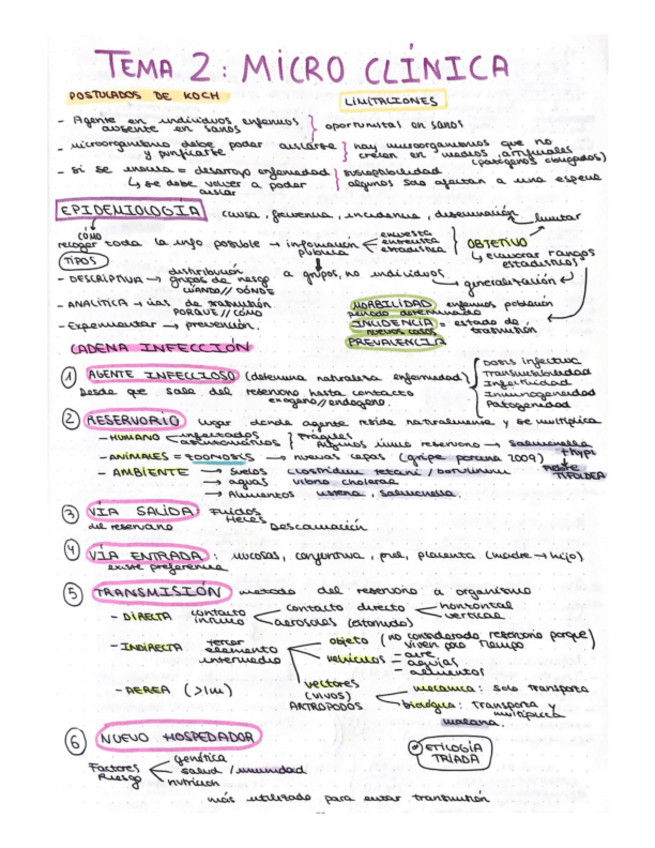 TEMA 2: MICRO CLÍNICA
POSTULADOS DE KOCH
LIMITACIONES
- Agente en individuos enfermos
ausente en sanos
oportunistas en sanos
- microorganismo debe poder aislarse
y purificarse
hay microorganismos que no
crecen en medios artificiales
(patógenos obligados)
- si se = desarrollo enfermedad
↳ se debe volver a poder
aislar
susceptibilidad
algunos solo afectan a una especie
EPIDEMIOLOGÍA causa, frecuencia, incidencia, diseminación limitar
CÓMO
recoger toda la info posible → información
pública
encuesta
entrevista
estadística
OBJETIVO
↳ elaborar rangos
estadísticos
TIPOS
- DESCRIPTIVA → distribución
grupos de riesgo
CUÁNDO // DÓNDE
a grupos, no individuos
→ generalización
- ANALÍTICA → vías de transmisión
PORQUE // CÓMO
- Experimentar → prevención.
MORBILIDAD enfermos población
periodo determinado
INCIDENCIA = estado de
nuevos casos transmisión
PREVALENCIA
CADENA INFECCIÓN
1 AGENTE INFECCIOSO (determina naturaleza enfermedad)
Desde que sale del reservorio hasta contacto
exógeno // endógeno.
Dosis infectiva
Transmisibilidad
Infectividad
Inmunogeneidad
Patogenidad
2 RESERVORIO lugar donde agente reside naturalmente y se multiplica
- HUMANO infectados
asintomáticos
Frágiles
Algunos único reservorio → salmonella
thypi
- ANIMALES = ZOONOSIS → nuevas cepas (gripe porcina 2009)
FIEBRE
TIFOIDEA
- AMBIENTE → Suelos clostridium tetani / botulinum
→ aguas vibrio cholerae
→ Alimentos listeria, salmonella.
3 VÍA SALIDA: Fluidos
del reservorio Heces
Descamación
4 VÍA ENTRADA: mucosas, conjuntiva, piel, placenta (madre → hijo)
existe preferencia
5 TRANSMISIÓN método del reservorio a organismo
- DIRECTA contacto
íntimo
contacto directo horizontal
vertical
aerosoles (estornudo)
- INDIRECTA tercer
elemento
intermedio
objeto (no considerado reservorio porque)
viven poco tiempo
vehículos - aire
- aguas
- alimentos
vectores
(VIVOS)
ARTRÓPODOS
mecánica: solo transporta
biológica: transporta y
multiplica
malaria.
- AÉREA (>1m)
6 NUEVO HOSPEDADOR
Factores
Riesgo
genética
salud / inmunidad
nutrición
ETILOGÍA
TRIADA
más utilizado para evitar transmisión